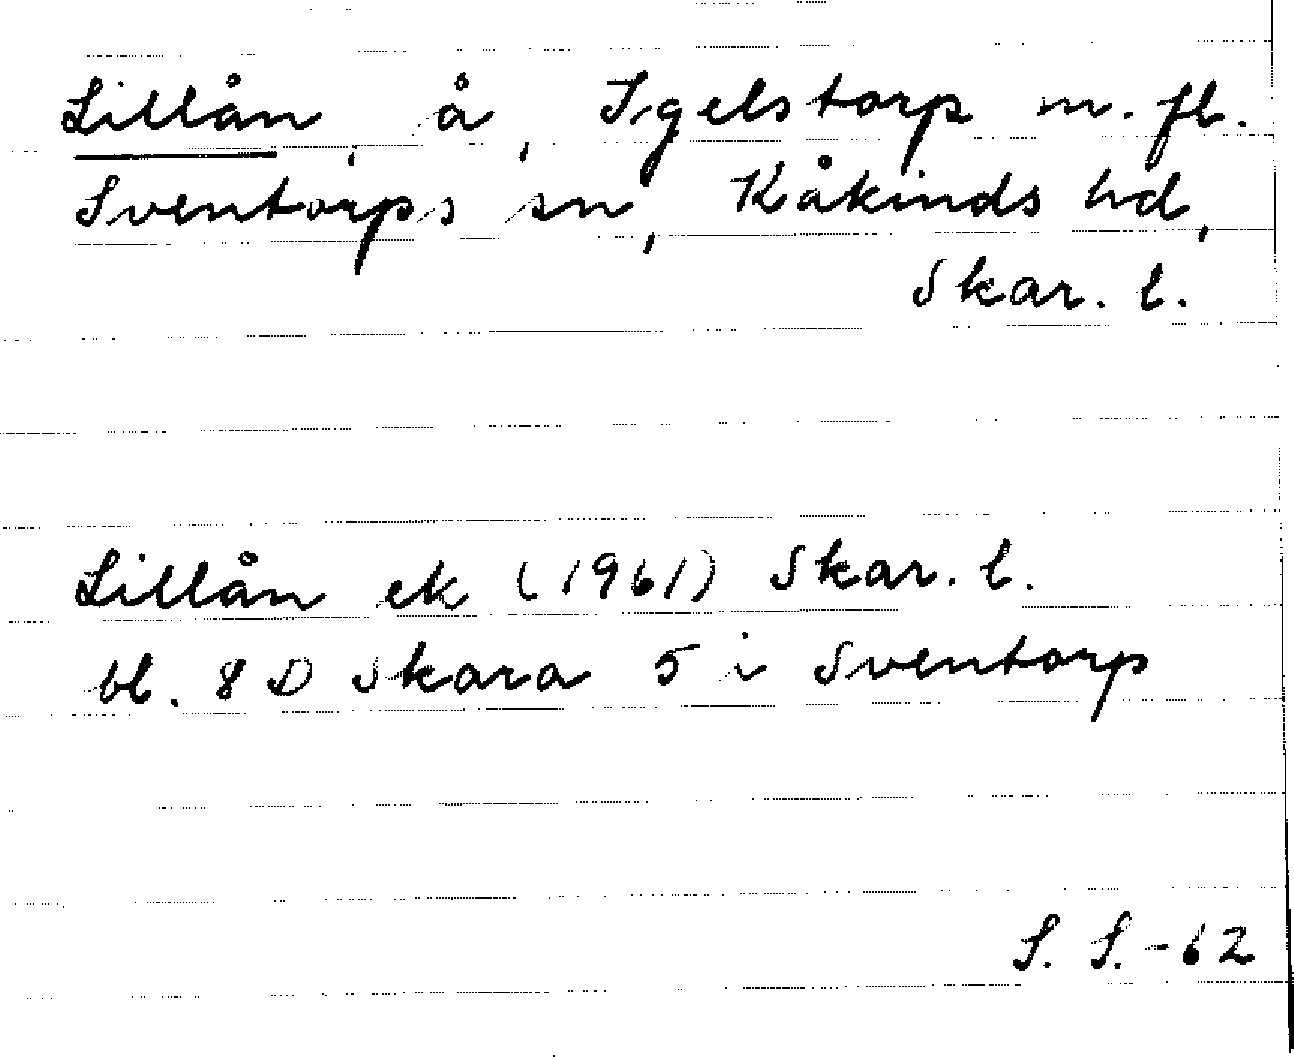 Lillån, å, Igelstorp m. fl.
Sventorps sn, Kåkinds hd,
Skar. l.
Lillån ek (1961) Skar. l.
bl. 8 D Skara 5 i Sventorp
S. S. -62